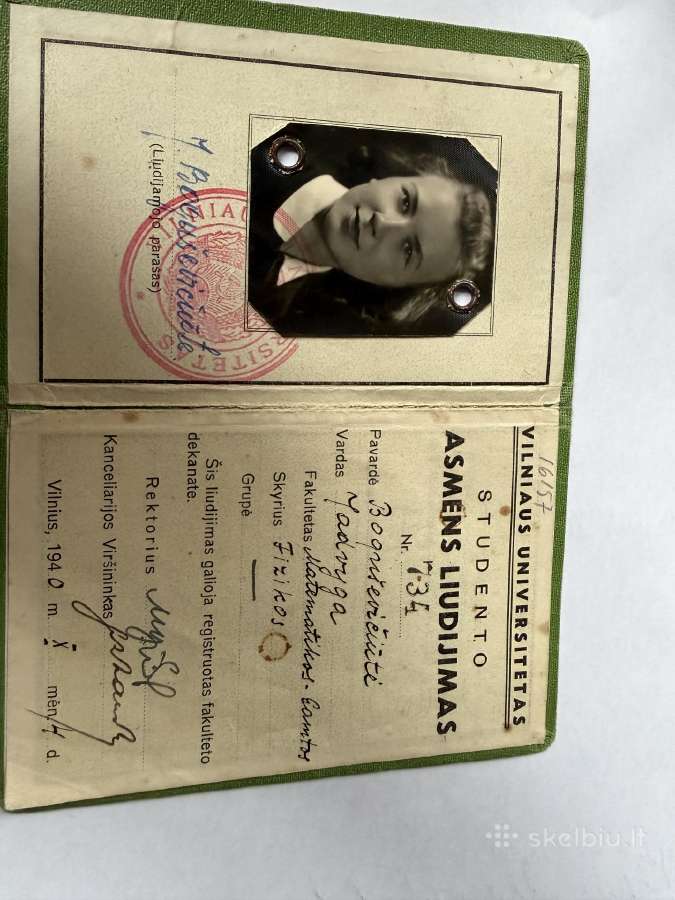 J. Boguševičiūtė
(Liudijamojo parašas)
VILNIAUS UNIVERSITETAS
16157
VILNIAUS UNIVERSITETAS
STUDENTO
ASMENS LIUDIJIMAS
Nr. 734
Pavardė Boguševičiūtė
Vardas Jadvyga
Fakultetas Matematikos-Gamtos
Skyrius Fizikos
Grupė —
Šis liudijimas galioja registruotas fakulteto
dekanate.
Rektorius
Kanceliarijos Viršininkas
Vilnius, 1940 m. X mėn. 14 d.
skelbiu.lt